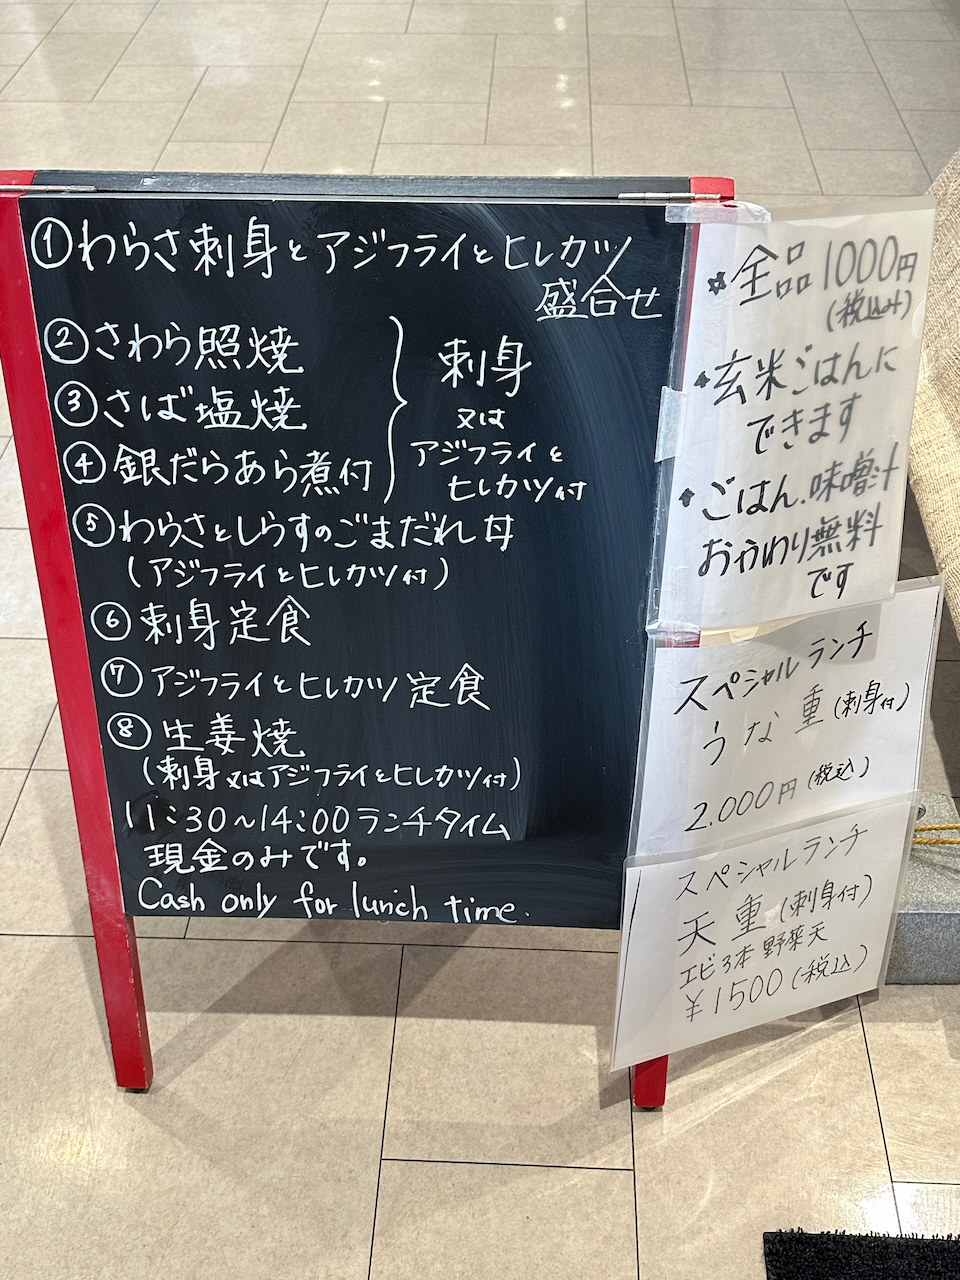 ①わらさ刺身とアジフライとヒレカツ
盛合せ
②さわら照焼
③さば塩焼
④銀だらあら煮付
刺身
又は
アジフライと
ヒレカツ付
⑤わらさとしらすのごまだれ丼
(アジフライとヒレカツ付)
⑥刺身定食
⑦アジフライとヒレカツ定食
⑧生姜焼
(刺身又はアジフライとヒレカツ付)
11:30~14:00ランチタイム
現金のみです。
Cash only for lunch time.
★全品1000円
(税込み)
★玄米ごはんに
できます
★ごはん.味噌汁
おかわり無料
です
スペシャルランチ
うな重(刺身付)
2.000円(税込)
スペシャルランチ
天重(刺身付)
エビ3本野菜天
¥1500(税込)